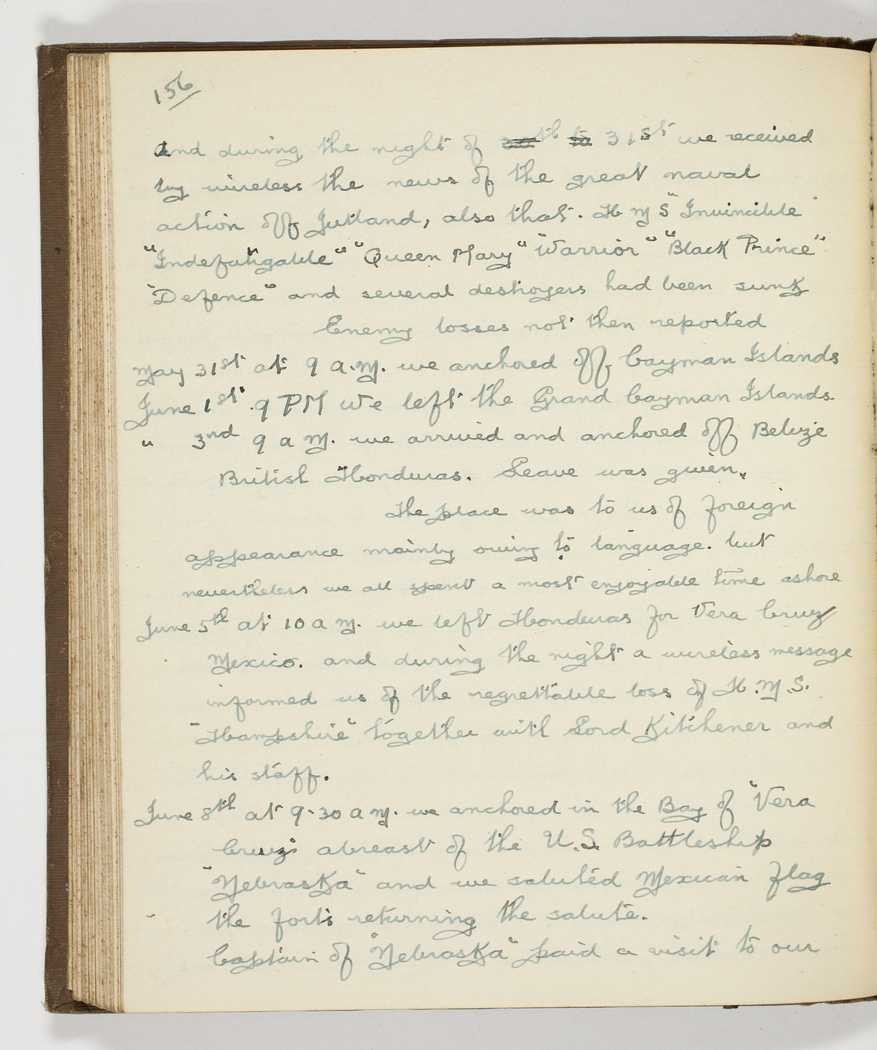 156
And during the night of 30th to 31st we received
by wireless the news of the great naval
action off Jutland, also that. H M S "Invincible"
"Indefatigable" "Queen Mary" "Warrior" "Black Prince"
"Defence" and several destroyers had been sunk
Enemy losses not then reported
May 31st at 9 a.m. we anchored off Cayman Islands
June 1st 9 PM we left the Grand Cayman Islands.
" 3rd 9 a m. we arrived and anchored off Belize
British Honduras. Leave was given.
The place was to us of foreign
appearance mainly owing to language. but
nevertheless we all spent a most enjoyable time ashore
June 5th at 10 a m. we left Honduras for Vera Cruz
Mexico. and during the night a wireless message
informed us of the regrettable loss of H.M.S.
"Hampshire" together with Lord Kitchener and
his staff.
June 8th at 9-30 a m. we anchored in the Bay of "Vera
Cruz" abreast of the U.S. Battleship
"Nebraska" and we saluted Mexican flag
the forts returning the salute.
Captain of "Nebraska" paid a visit to our